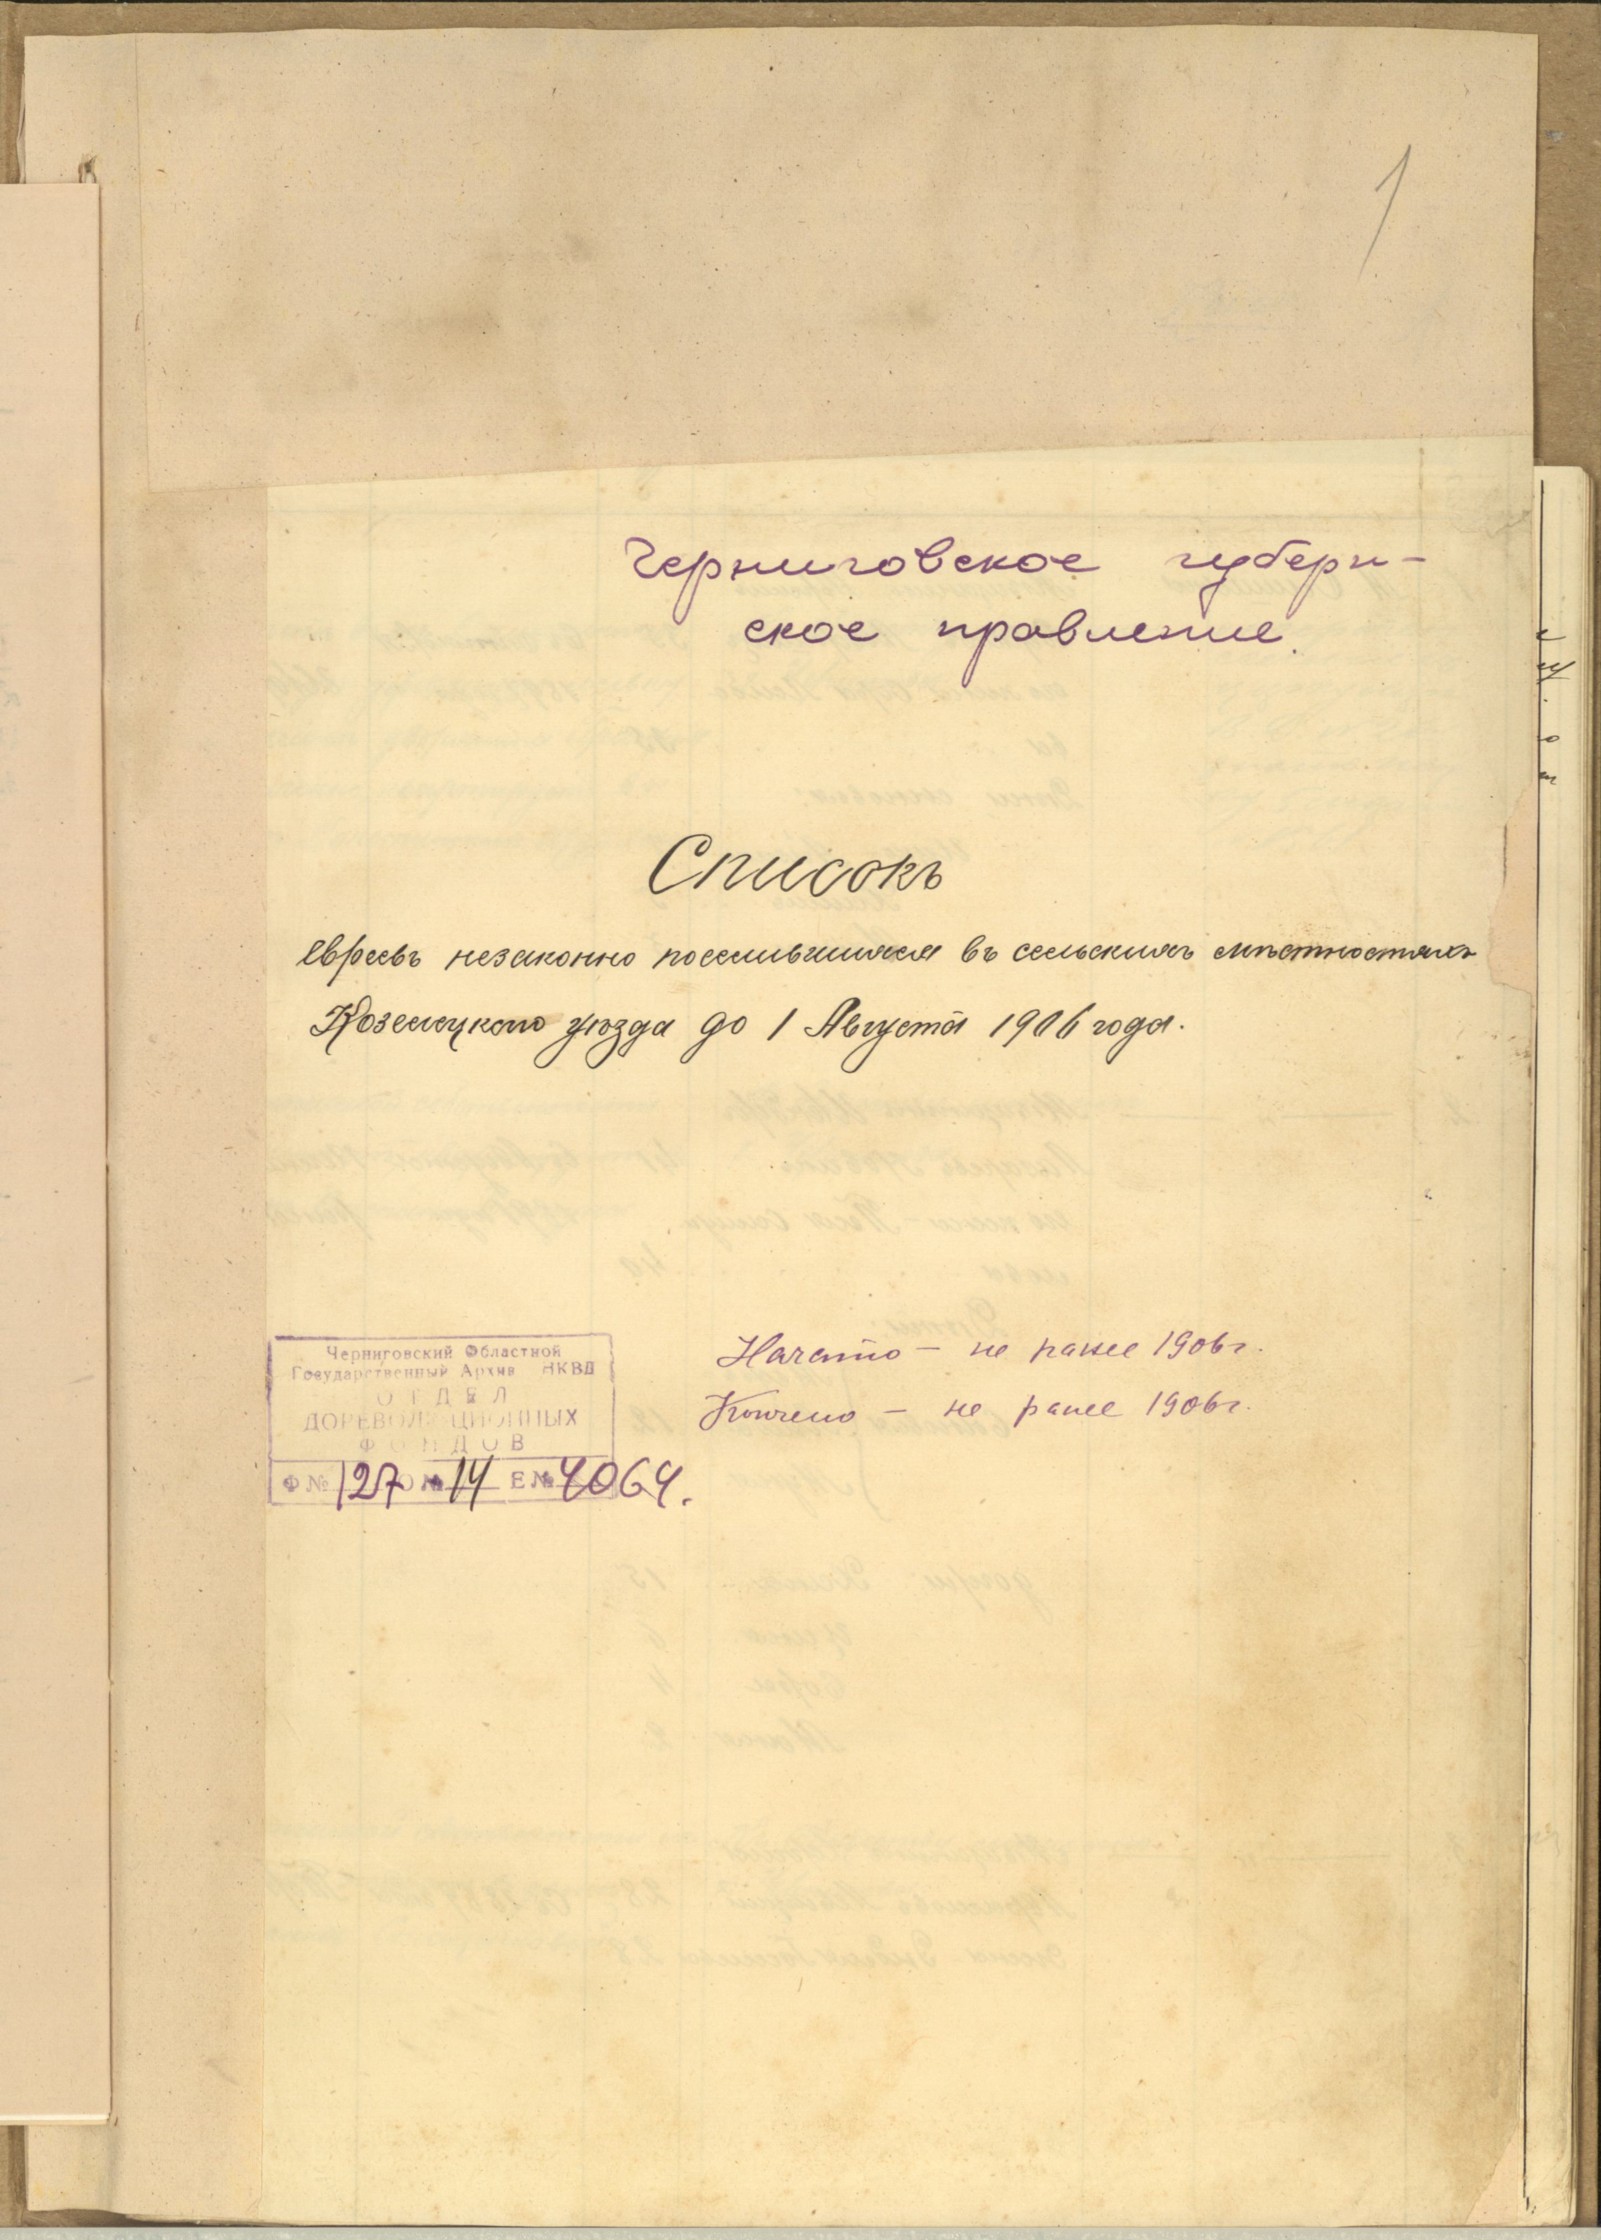 1
Черниговское губерн-
ское правление.
Списокъ
евреевъ незаконно поселившихся въ сельскихъ мѣстностяхъ
Козелецкаго уѣзда до 1 Августа 1906 года.
Начато – не ранее 1906 г.
Кончено – не ранее 1906 г.
Черниговский Областной
Государственный Архив НКВД
ОТДЕЛ
ДОРЕВОЛЮЦИОННЫХ
ФОНДОВ
Ф № 127 О № 14 Е № 4064.